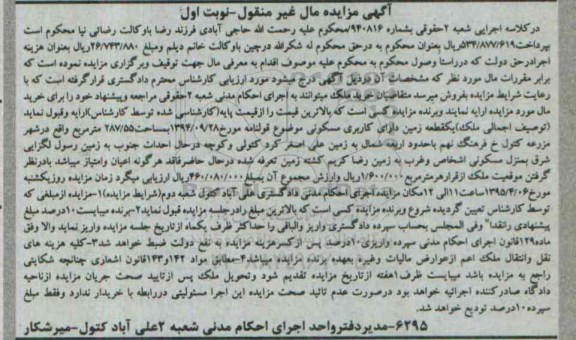 آگهی مزایده مال غیر منقول-نوبت اول
درکلاسه اجرایی شعبه ۲حقوقی بشماره ۹۴۰۸۱۶/محکوم علیه رحمت الله حاجی آبادی فرزند رضا باوکالت رضائی نیا محکوم است
بپرداخت۵۳۴/۸۷۷/۶۱۹ریال بعنوان محکوم به درحق محکوم له شکرالله درچین باوکالت خانم دیلم ومبلغ ۲۶/۷۴۳/۸۸۰ریال بعنوان هزینه
اجرادرحق دولت که درراستا وصول محکوم به محکوم علیه موصوف اقدام به معرفی مال جهت توقیف وبرگزاری مزایده نموده است که
برابر مقررات مال مورد نظر که مشخصات آن درذیل آگهی درج میشود مورد ارزیابی کارشناس محترم دادگستری قرارگرفته است که با
رعایت شرایط مزایده بفروش میرسد متقاضیان خرید ملک میتوانند به اجرای احکام مدنی شعبه ۲حقوقی مراجعه وپیشنهاد خود را برای خرید
مال مورد مزایده ارایه نمایند وبرنده مزایده کسی است که بالاترین قیمت را ازقیمت پایه(کارشناسی شده توسط کارشناس)ارایه وقبول نماید
(توصیف اجمالی ملک)یکقطعه زمین دارای کاربری مسکونی موضوع قولنامه مورخ۱۳۹۴/۰۹/۲۸ بمساحت۲۸۷/۵۵ مترمربع واقع درشهر
مزرعه کتول خ فرهنگ نهم باحدود اربعه شمال به زمین علی اصغر کرد کتولی وکوچه درحال احداث جنوب به زمین رسول لکزایی
شرق بمنزل مسکونی اشخاص وغرب به زمین رضا کریم کشته زمین تعرفه شده درحال حاضرفاقد هرگونه اعیان وامتیاز میباشد بادرنظر
گرفتن موقعیت ملک ازقرارهرمترمربع ۱/۶۰۰/۰۰۰ریال وارزش مجموع آن بمبلغ ۴۶۰/۰۸۰/۰۰۰ریال ارزیابی میگرد زمان مزایده روزیکشنبه
مورخ۱۳۹۵/۴/۰۶ساعت۱۱الی ۱۲مکان مزایده اجرای احکام مدنی دادگستری علی آباد کتول شعبه دوم(شرایط مزایده)۱-مزایده ازمبلغی که
توسط کارشناس تعیین گردیده شروع وبرنده مزایده کسی است که بالاترین مبلغ رادرجلسه مزایده قبول نماید۲-برنده میبایست۱۰درصد مبلغ
پیشنهادی رانقدا" وفی المجلس بحساب سپرده دادگستری واریز والباقی را حداکثر ظرف یکماه ازتاریخ جلسه مزایده واریز نماید والا وفق
ماده۱۲۹قانون اجرای احکام مدنی سپرده واریزی۱۰درصد پس ازکسرهزینه مزایده به نفع دولت ضبط خواهد شد۳-کلیه هزینه های
نقل وانتقال ملک اعم ازعوارض مالیات وغیره بعهده برنده مزایده میباشد۴-مطابق مواد ۱۴۲و۱۴۳قانون اشعاری چنانچه شکایتی
راجع به مزایده باشد میبایست ظرف۱هفته ازتاریخ مزایده تقدیم شود وتحویل ملک پس ازتایید صحت جریان مزایده ازناحیه
دادگاه صادرکننده اجرائیه خواهد بود درصورت عدم تائید صحت مزایده این اجرا مسئولیتی دررابطه با خریدار ندارد وفقط مبلغ
سپرده۱۰درصد تودیع خواهد شد.
۶۲۹۵-مدیردفترواحد اجرای احکام مدنی شعبه ۲علی آباد کتول-میرشکار